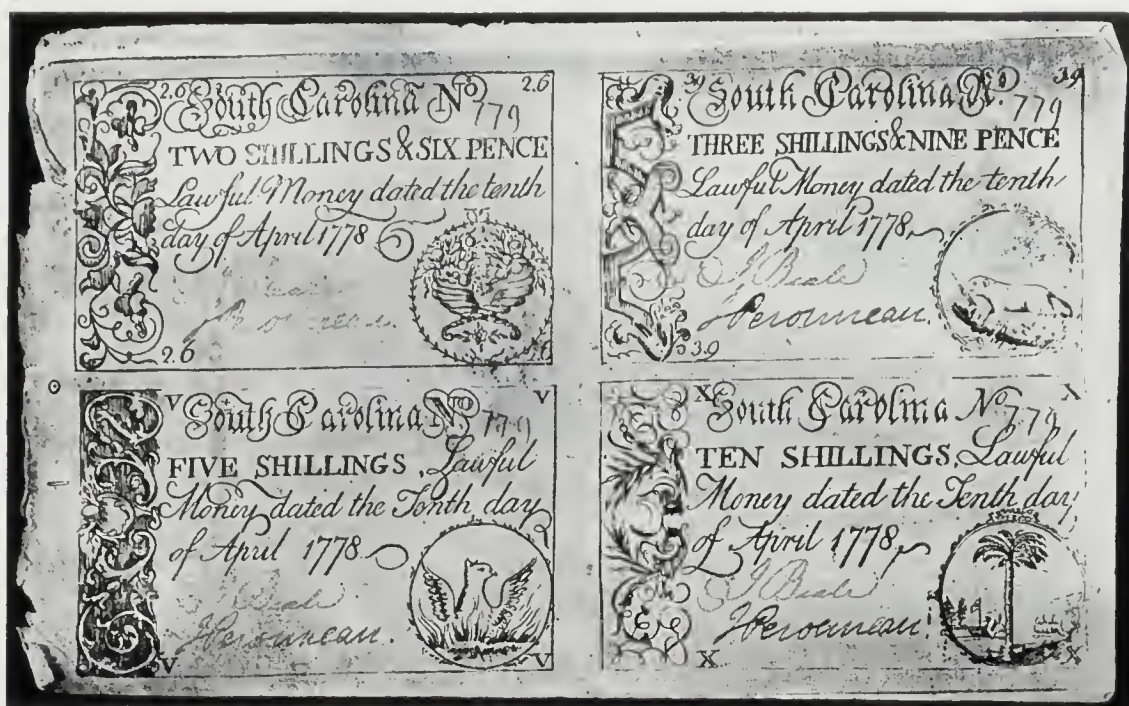 2.6 South Carolina No 779 2.6
TWO SHILLINGS & SIX PENCE
Lawful Money dated the tenth
day of April 1778
2.6
3.9 South Carolina No. 779 3.9
THREE SHILLINGS & NINE PENCE
Lawful Money dated the tenth
day of April 1778
J Beale
JPeronneau.
3.9
V South Carolina No 779 V
FIVE SHILLINGS, Lawful
Money dated the Tenth day
of April 1778
J Beale
JPeronneau.
V V
X South Carolina No 779 X
TEN SHILLINGS, Lawful
Money dated the Tenth day
of April 1778,
J Beale
JPeronneau
X X